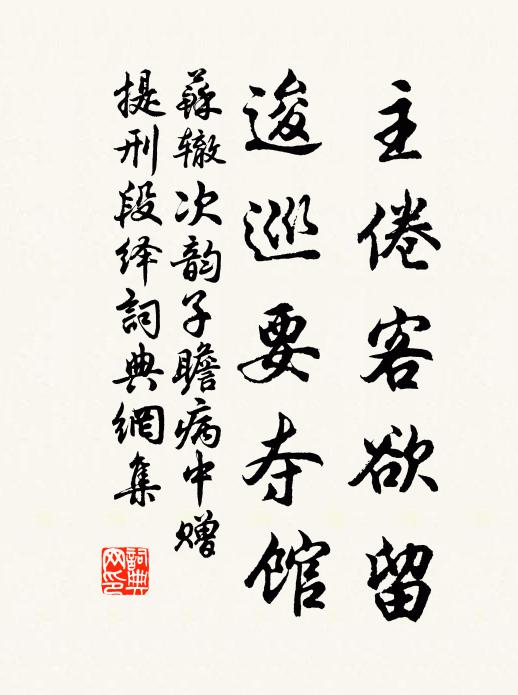 主倦客欲留
逡巡要夺馆
蘇辙次韵子瞻病中赠
提刑段绎詞典網集
詞典网印